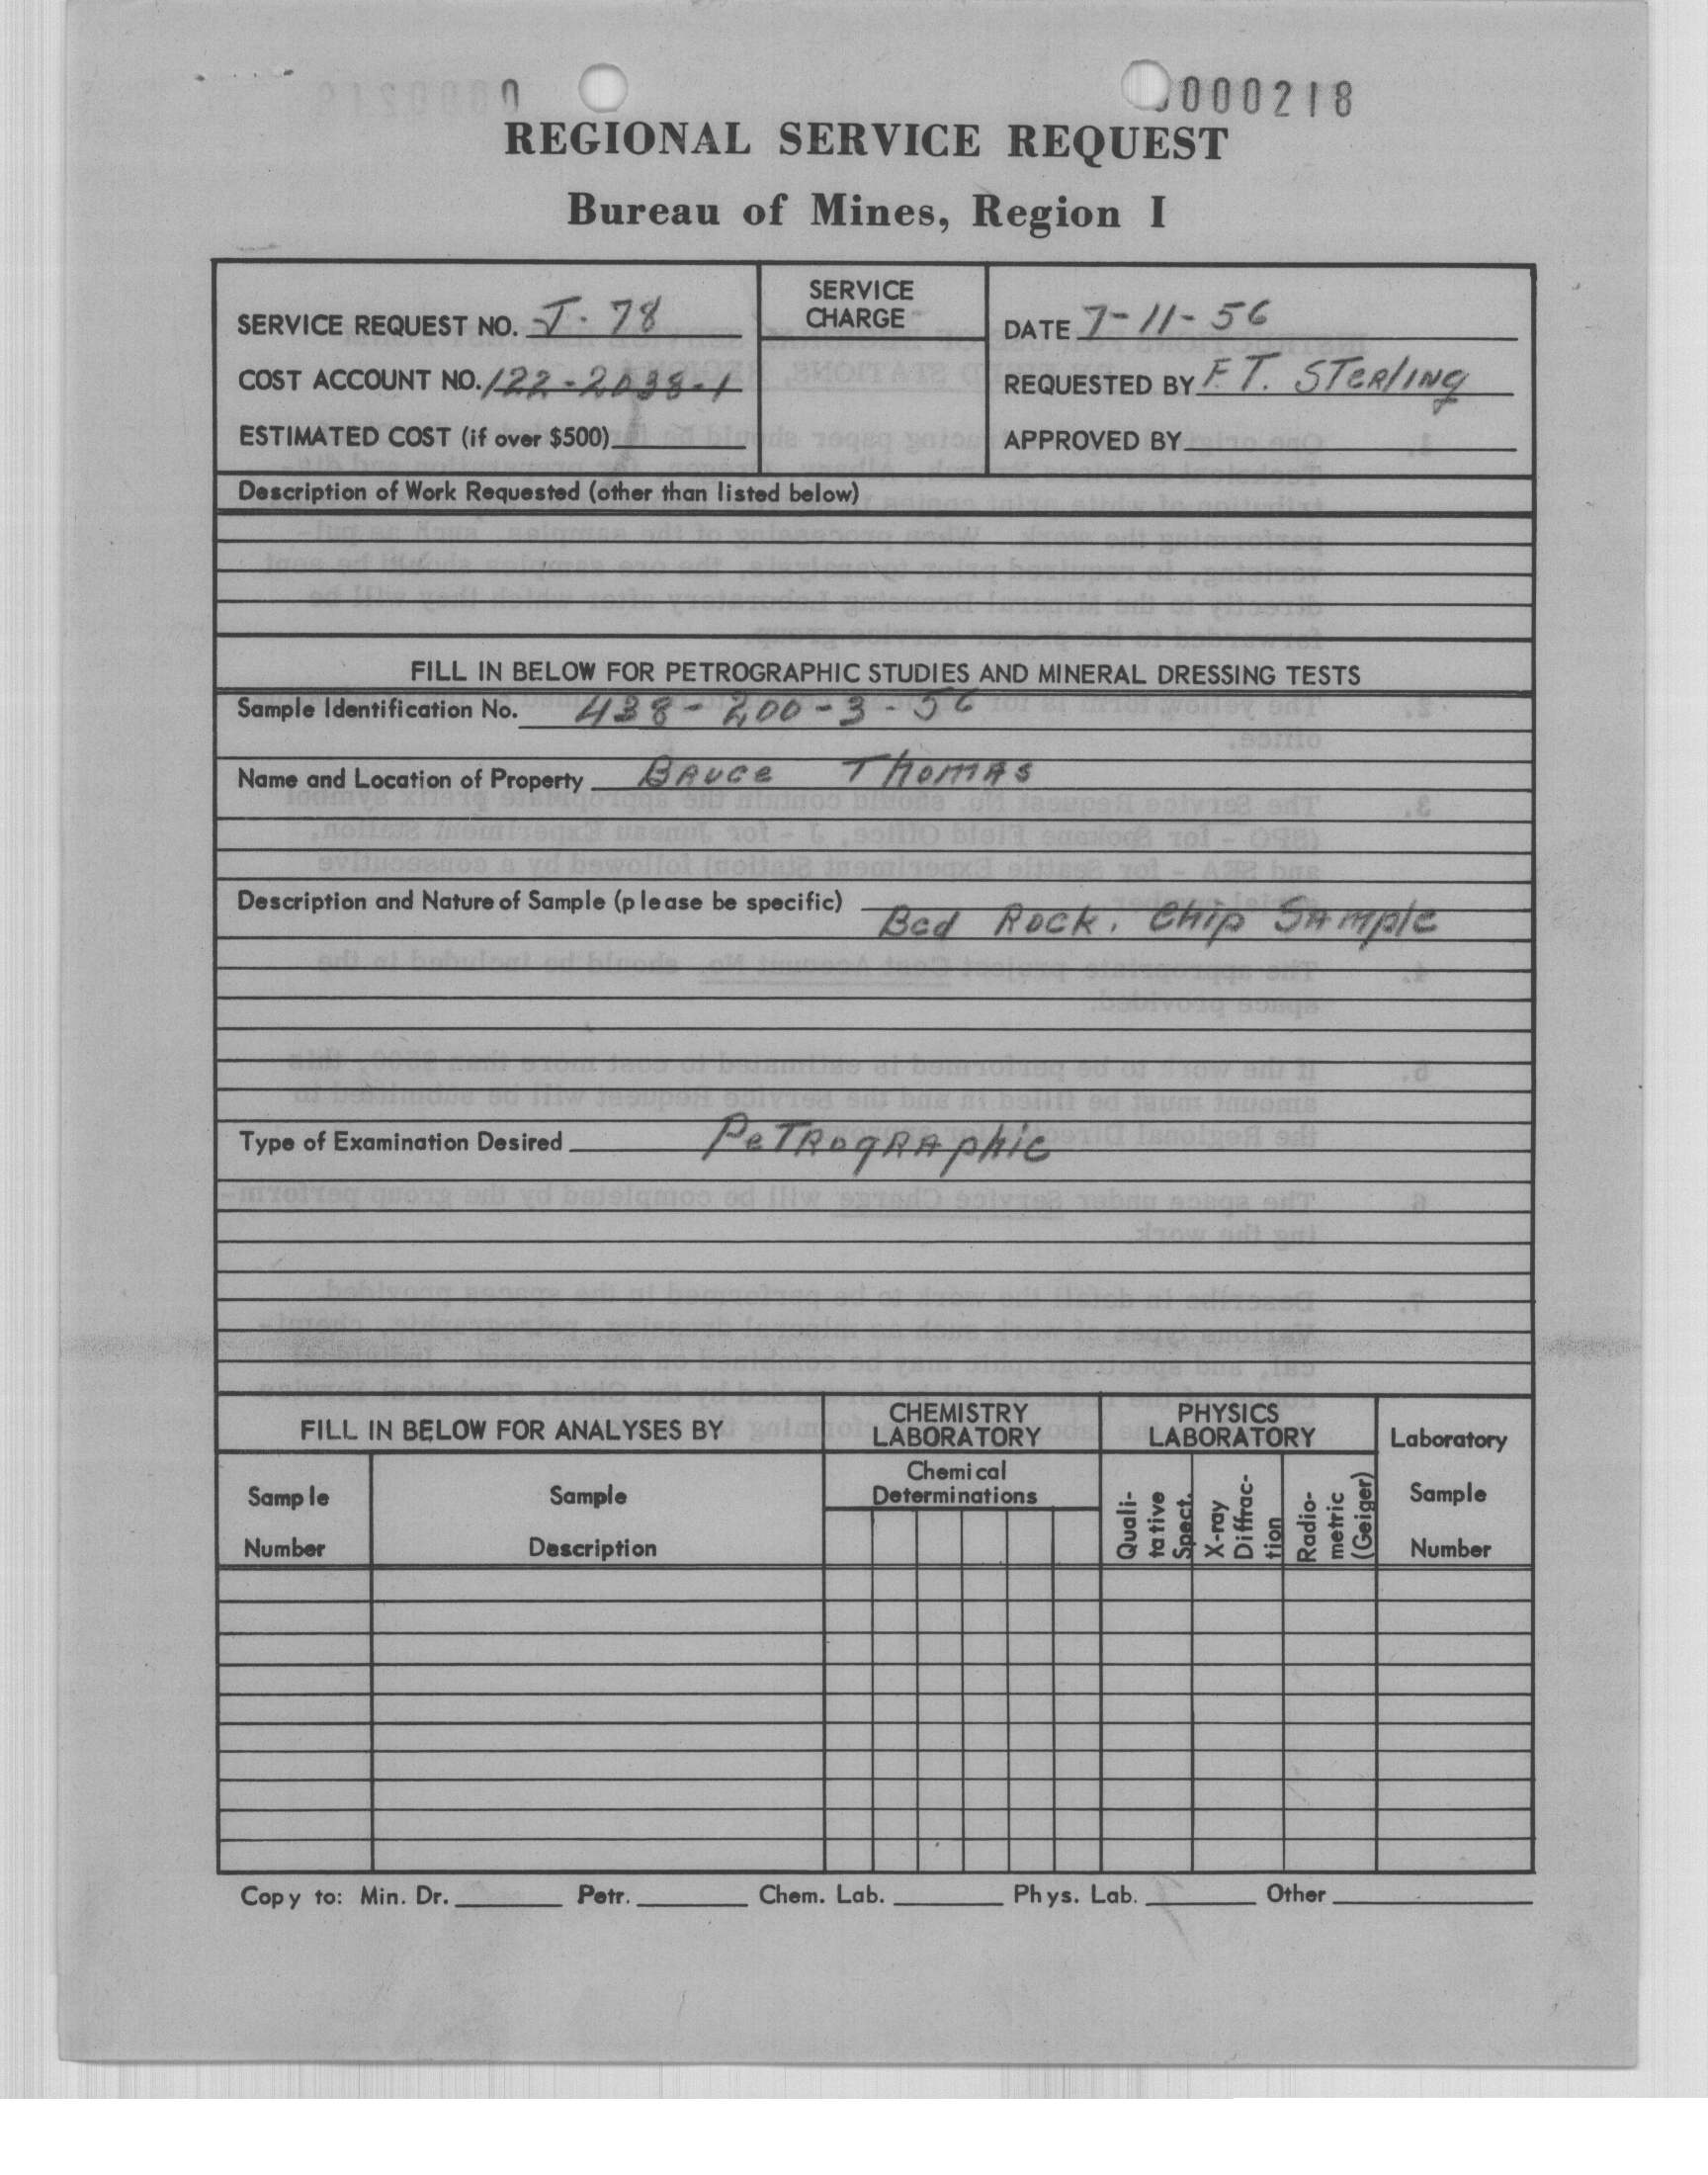 000218
REGIONAL SERVICE REQUEST
Bureau of Mines, Region I
SERVICE REQUEST NO. J-78
COST ACCOUNT NO. 122-2038-1
ESTIMATED COST (if over $500)
SERVICE CHARGE
DATE 7-11-56
REQUESTED BY F.T. STERLING
APPROVED BY
Description of Work Requested (other than listed below)
FILL IN BELOW FOR PETROGRAPHIC STUDIES AND MINERAL DRESSING TESTS
Sample Identification No. 438-200-3-56
Name and Location of Property Bruce Thomas
Description and Nature of Sample (please be specific)
Bed Rock. Chip Sample
Type of Examination Desired Petrographic
FILL IN BELOW FOR ANALYSES BY
CHEMISTRY LABORATORY
PHYSICS LABORATORY
Laboratory Sample Number
Sample Number
Sample Description
Chemical Determinations
Quali-tative Spect.
X-ray Diffrac-tion
Radio-metric (Geiger)
Copy to: Min. Dr. Petr. Chem. Lab. Phys. Lab. Other